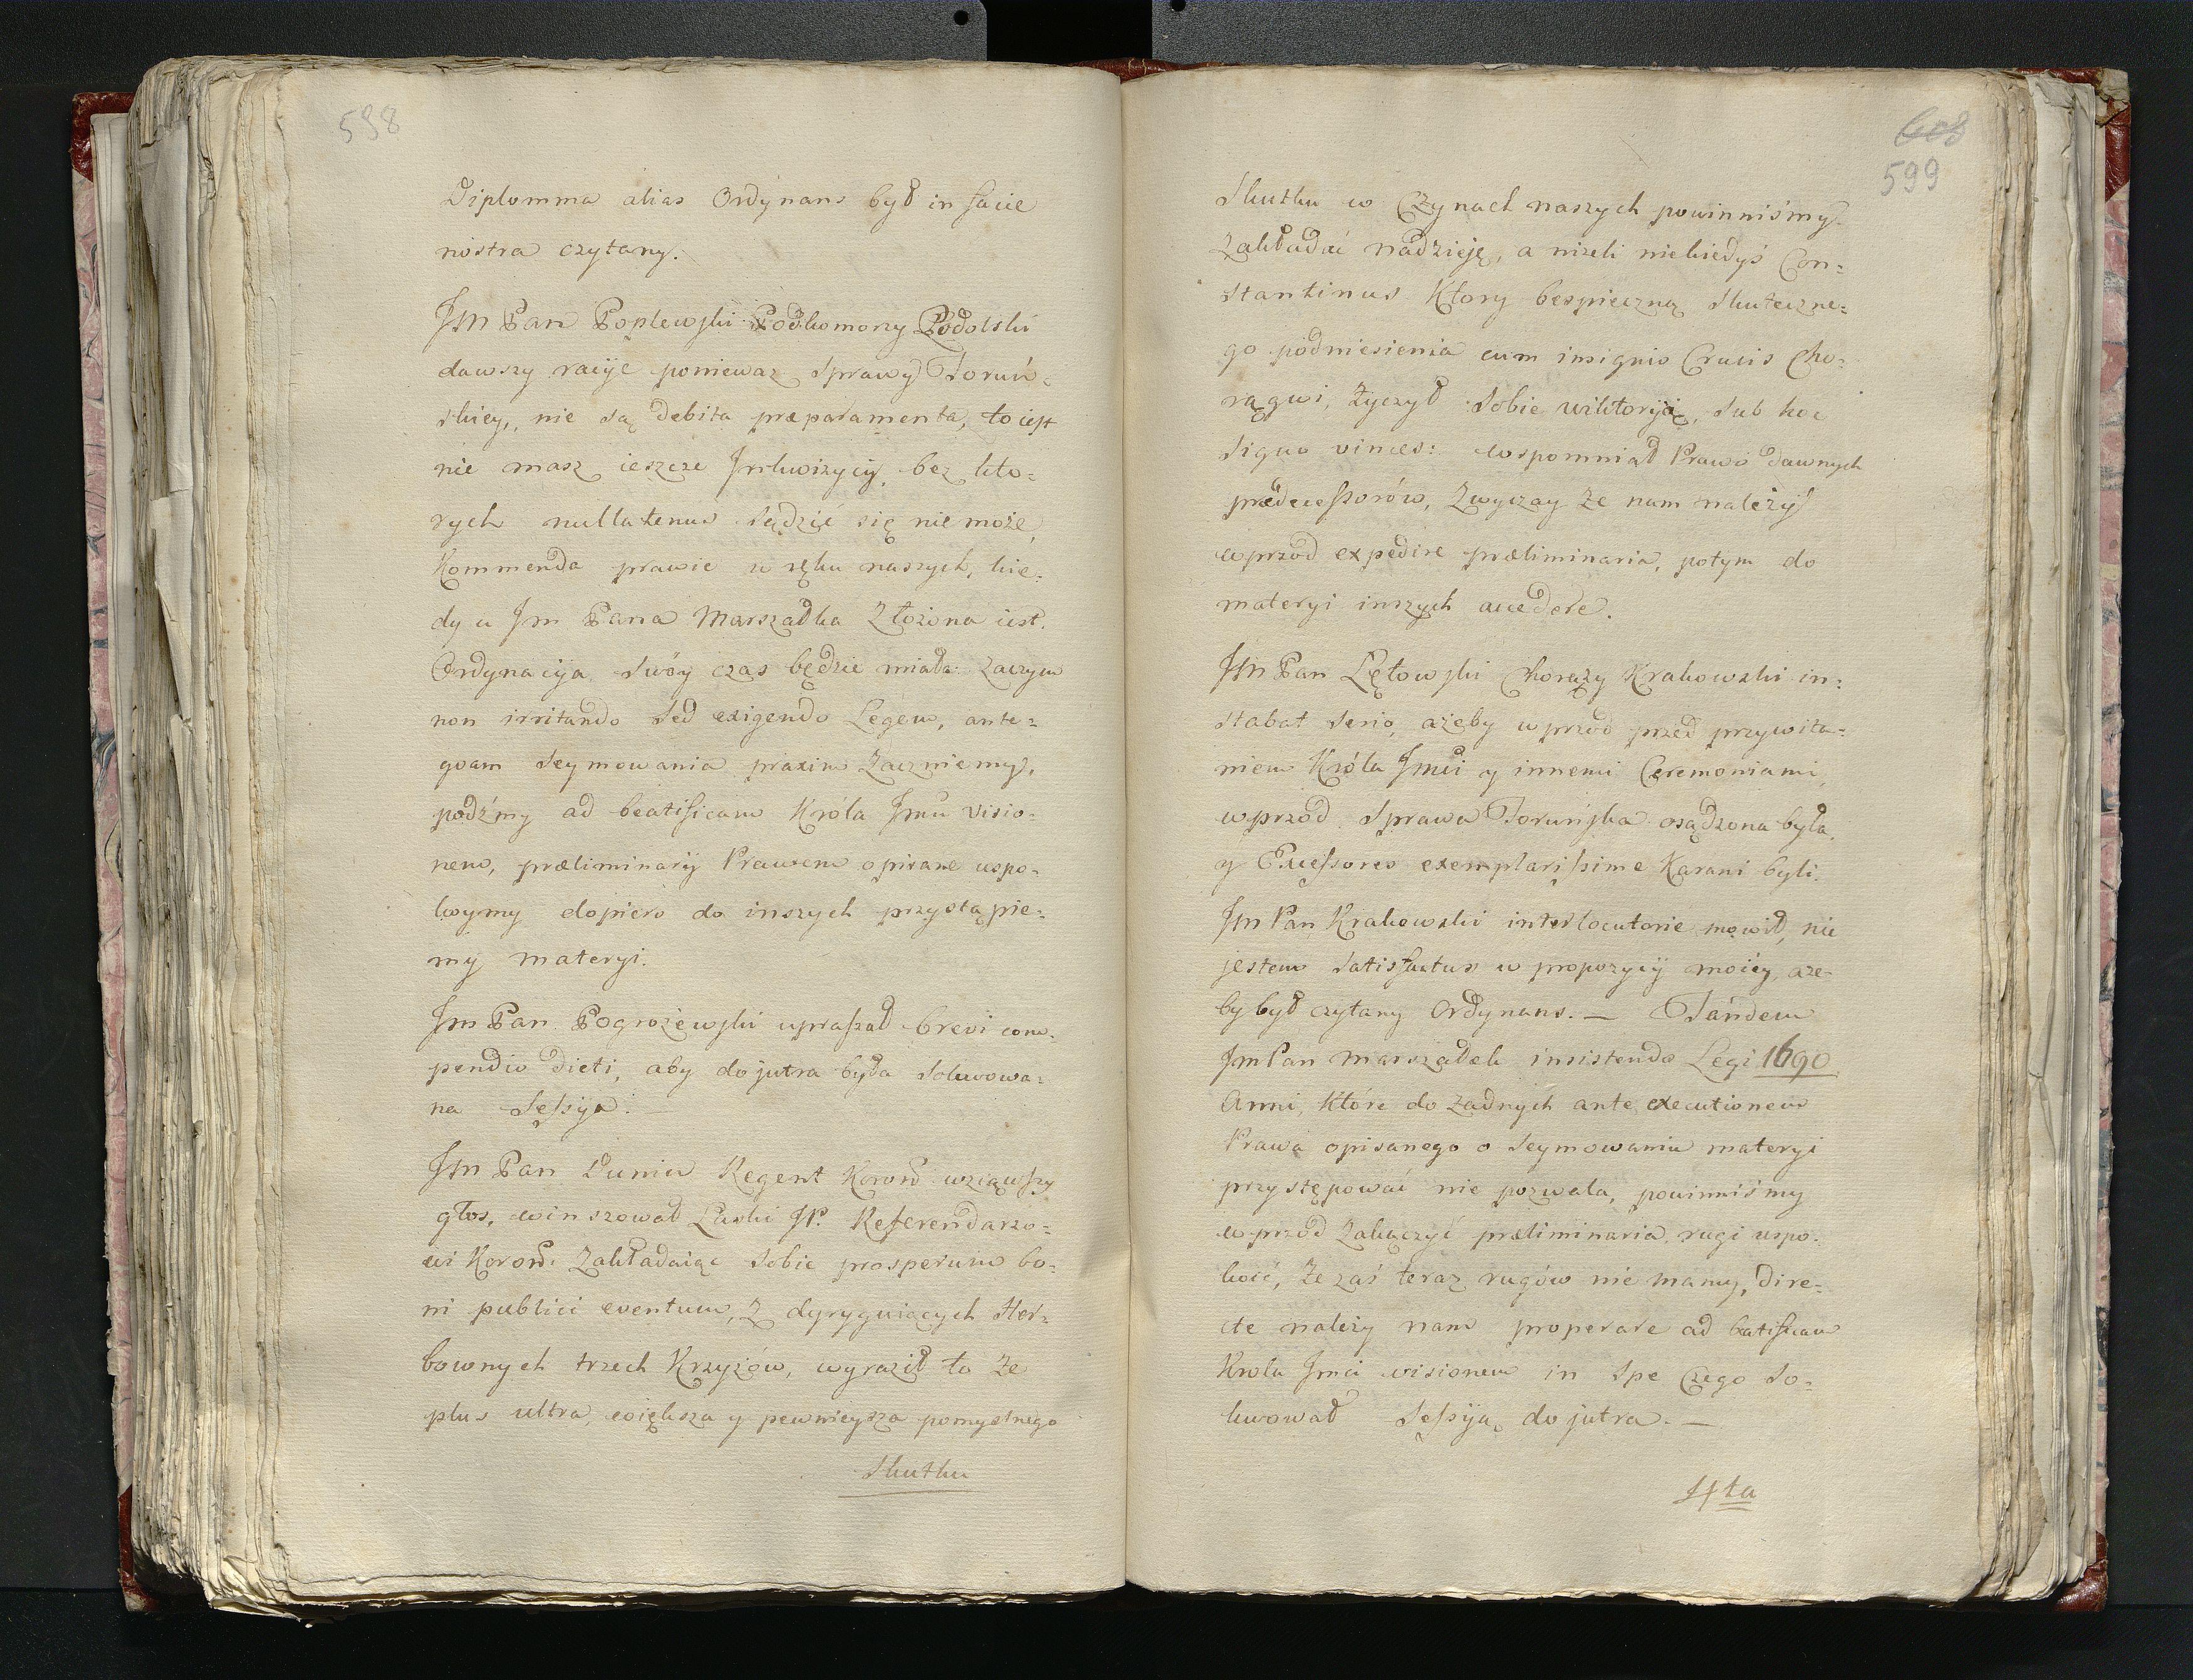 598
Diplomma alias Ordynans był in facie
nostra czytany.
Jm Pan Poplewski Podkomorzy Podolski
dawszy racÿe poniewaz Sprawy Toruń-
skiey, nie są debita præparamenta, to iest
nie masz ieszcze Jnkwizycÿi, bez kto-
rych nullatenus Sądzić się nie może,
Kommenda prawie w ręku naszych, kie-
dy u Jm Pana Marszałka Złożona iest.
Ordynacÿa, Swóy czas będzie miała: zaczym
non irritando Sed exigendo Legem, ante-
qvam Seymowania praxim Zaczniemy,
podźmy ad beatificam Króla Jmci Visio-
nem, præliminarÿ Prawem opisane uspo-
koymy dopiero do inszych przystąpie-
my materyi.
Jm Pan Pogrożewski upraszał brevi com-
pendio dicti, aby do jutra była Solwowa-
na Sessÿa.
Jm Pan Dunin Regent Koron wziąwszy
głos, winszował Laski JP. Referendarzo-
wi Koron: Zakładaiąc Sobie prosperum bo-
ni publici eventum, z dyryguiących Her-
bownych trzech Krzyżów, wyraził to że
plus ultra, większa y pewnieysza pomyslnego
Skutku
608
599
Skutku w Czynach naszych powinniśmy
Zakładać nadzieję, a niżeli niekiedyś Con-
stantinus Ktory bespieczną Skuteczne-
go podniesienia cum insignio Crucis Cho-
rągwi, Życzył Sobie wiktoryią, Sub hoc
Signo vinces: wspomniał Prawo dawnych
prædecessorów, Zwyczay że nam należy
wprzod expedire præliminaria, potym do
materyi inszych accedere.
Jm Pan Lętowski Chorąży Krakowski in-
stabat Serio, ażeby wprzod przed przywita-
niem Króla Jmci y innemi Ceremoniami,
wprzod Sprawa Toruńska osądzona była,
y Excessores exemplarissime Karani byli.
Jm Pan Krakowski interlocutorie mowił, nie
jestem Satisfactus w propozycÿi moiey, aże-
by był czytany Ordynans. — Tandem
Jm Pan Marszałek insistendo Legi 1690
Anni, Które do Zadnych ante executionem
Prawa opisanego o Seymowaniu materyi
przystępować nie pozwala, powinniśmy
wprzod Zakączyć præliminaria, rugi uspo-
koić, Że zaś teraz rugów nie mamy, dire-
cte należy nam properare ad beatificam
Krola Jmci visionem in Spe Czego So-
lwował Sessÿą do jutra. —
4ta